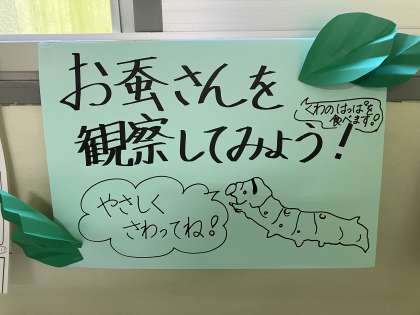 お蚕さんを
観察してみよう!
くわのはっぱを
食べます。
やさしく
さわってね!